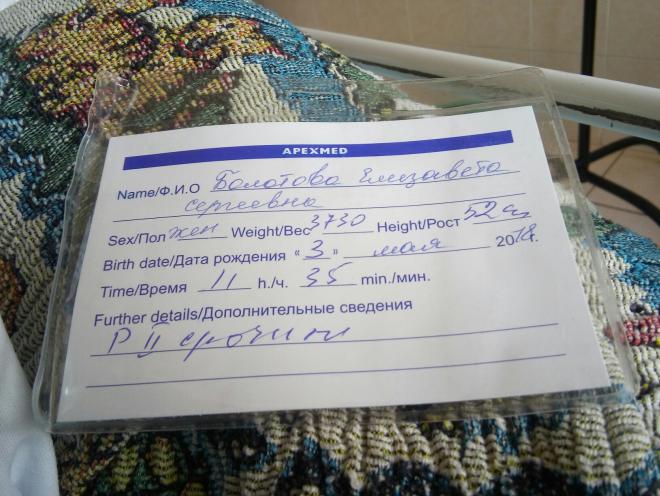 APEXMED
Name/Ф.И.О Болотова Елизавета
Сергеевна
Sex/Пол жен Weight/Вес 3730 Height/Рост 52 см
Birth date/Дата рождения «3» мая 2018г.
Time/Время 11 h./ч. 35 min./мин.
Further details/Дополнительные сведения
Р II срочные